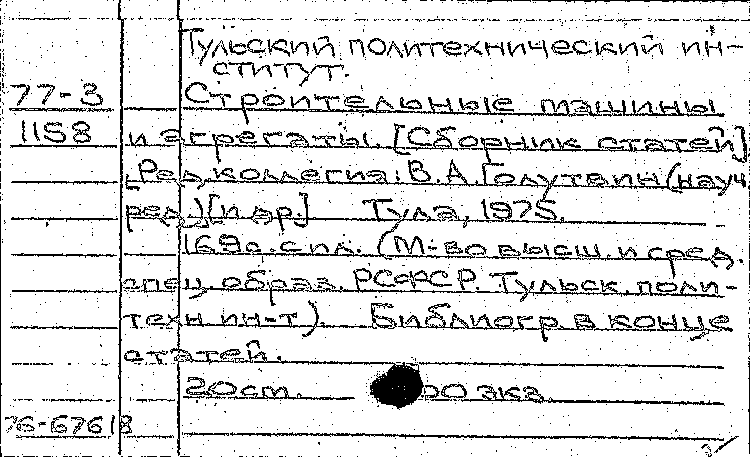 Тульский политехнический ин-
ститут.
77-3 Строительные машины
1158 и агрегаты. [Сборник статей].
Ред. коллегия: В. А. Голутвин (науч.
ред.) [и др.] Тула, 1975.
169 с. с ил. (М-во высш. и сред.
спец. образ. РСФСР. Тульск. поли-
техн. ин-т). Библиогр. в конце
статей.
20 cm. 00 экз.
76-67618